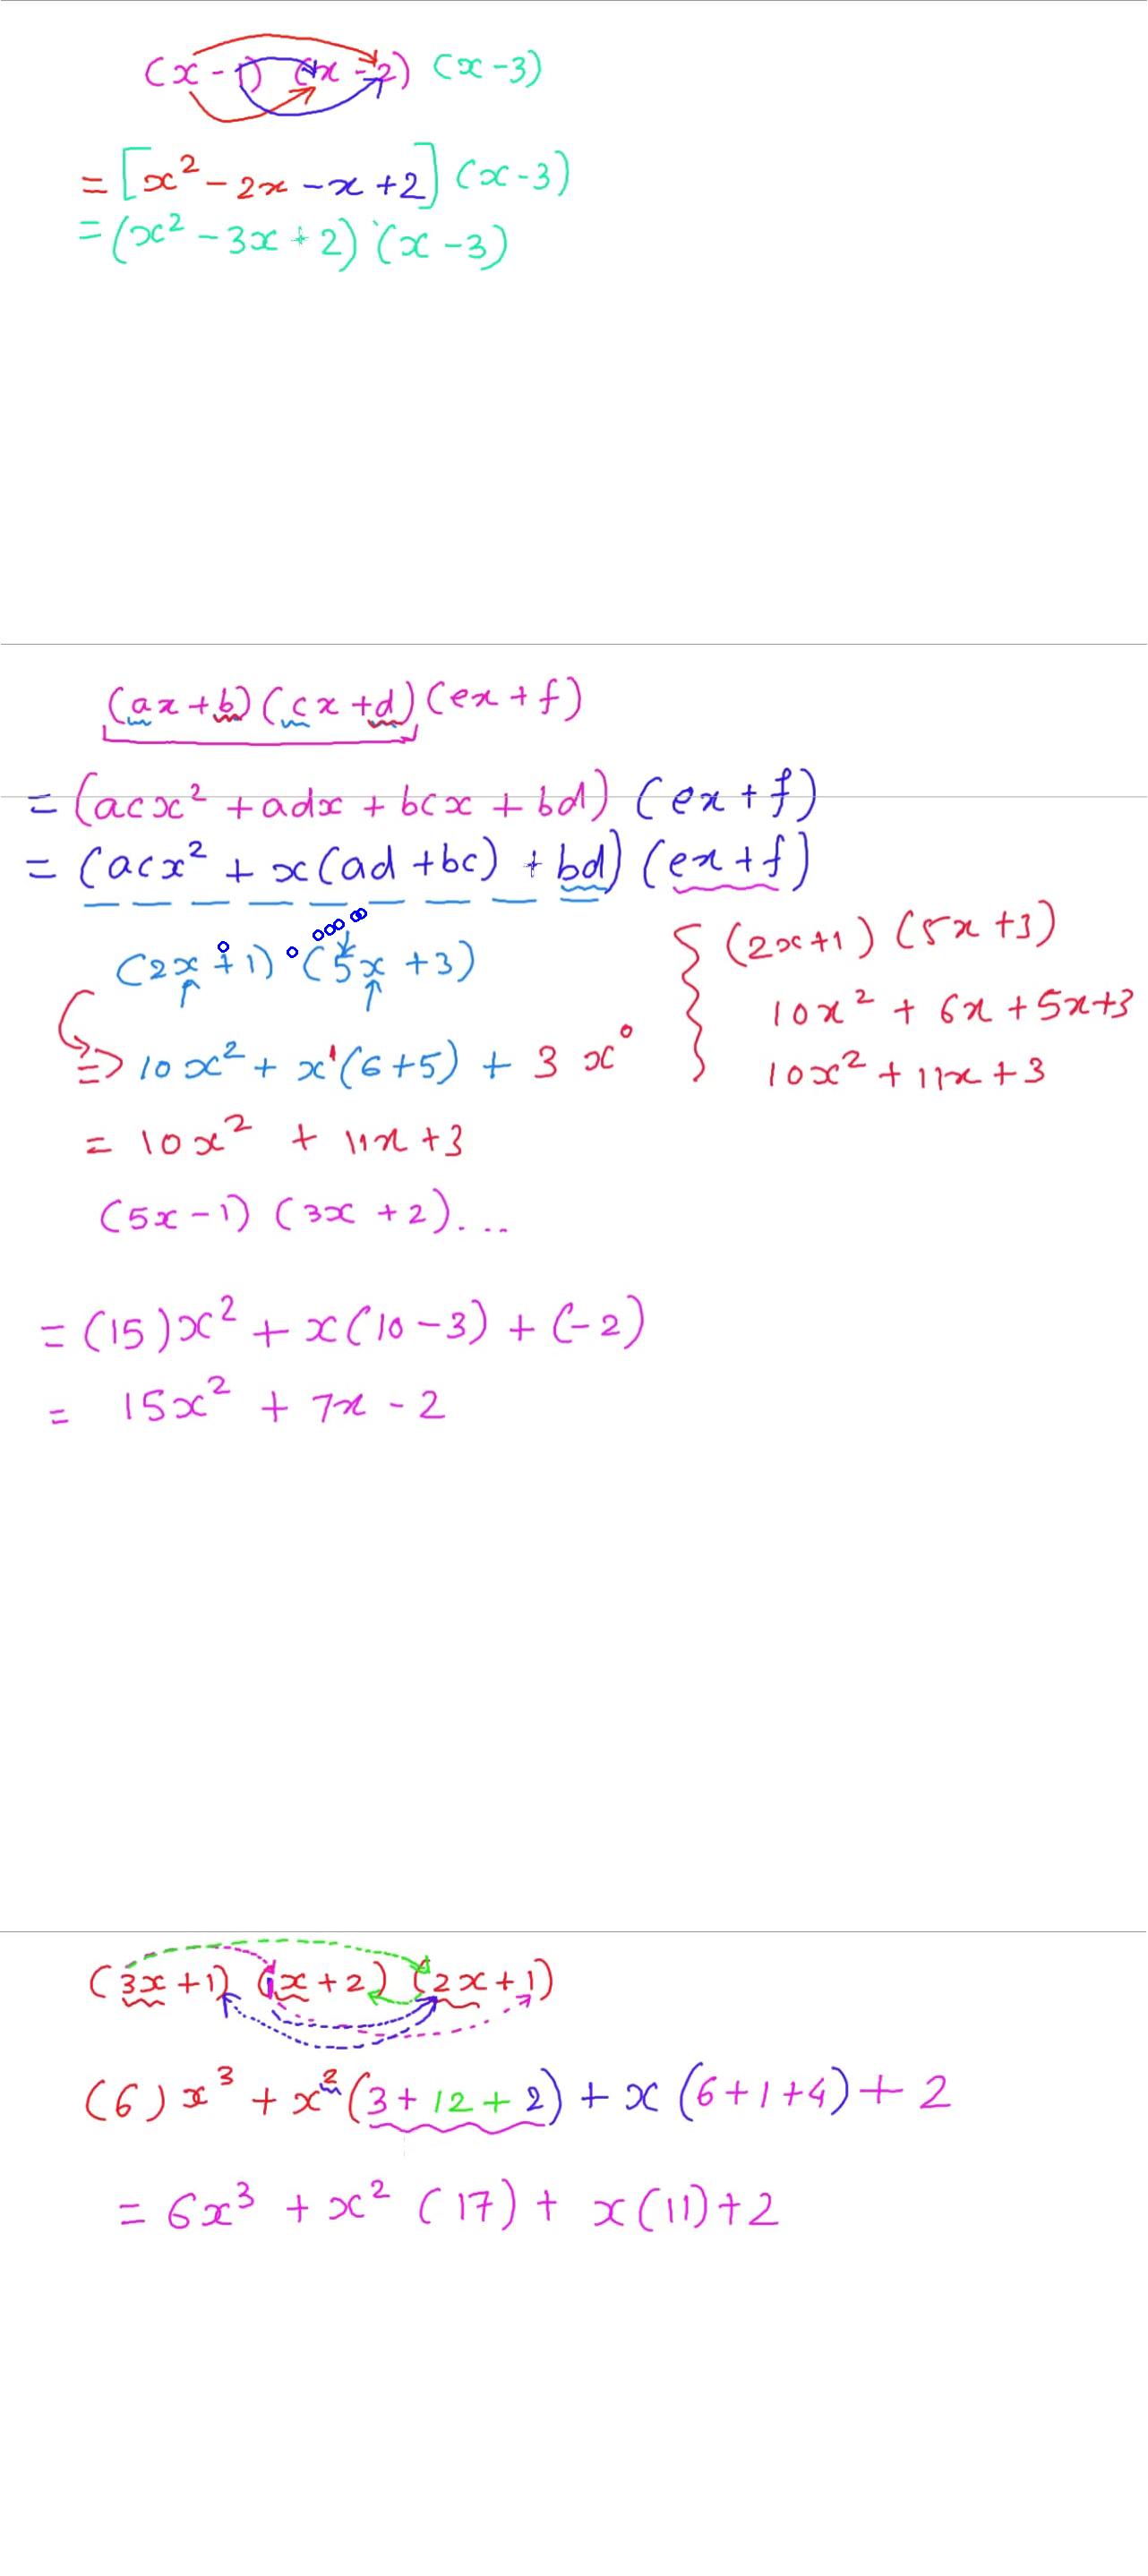 (x - 1) (x - 2) (x - 3)
= [x² - 2x - x + 2] (x - 3)
= (x² - 3x + 2) (x - 3)
(ax + b) (cx + d) (ex + f)
= (acx² + adx + bcx + bd) (ex + f)
= (acx² + x(ad + bc) + bd) (ex + f)
(2x + 1) · (5x + 3)
=> 10x² + x¹(6 + 5) + 3x⁰
= 10x² + 11x + 3
{ (2x + 1) (5x + 3)
10x² + 6x + 5x + 3
10x² + 11x + 3
(5x - 1) (3x + 2)...
= (15)x² + x(10 - 3) + (-2)
= 15x² + 7x - 2
(3x + 1) (x + 2) (2x + 1)
(6)x³ + x²(3 + 12 + 2) + x(6 + 1 + 4) + 2
= 6x³ + x² (17) + x(11) + 2